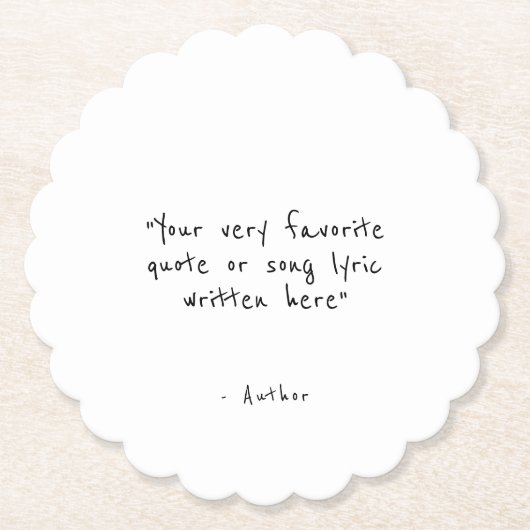 "Your very favorite
quote or song lyric
written here"
- Author